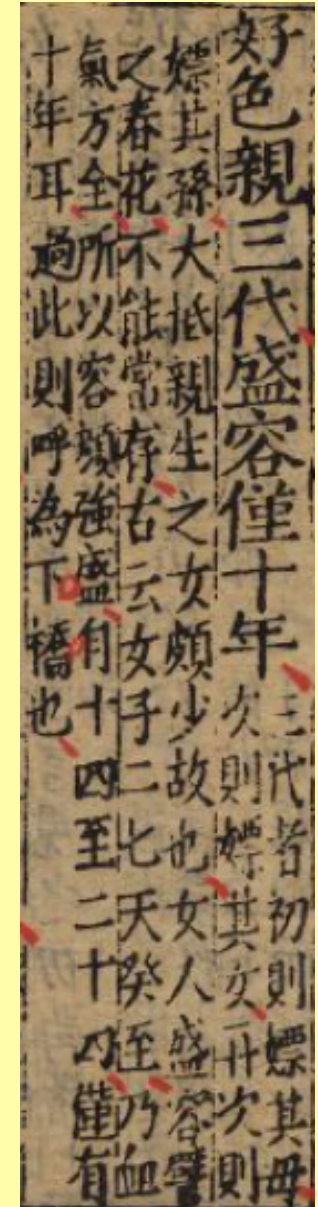 好色親三代盛容僅十年
三代者初則嫖其母
次則嫖其女再次則
嫖其孫大抵親生之女頗少故也女人盛容譬
之春花不能常存古云女子二七天癸至乃血
氣方全所以容顏強盛自十四至二十四僅有
十年耳過此則呼為下橋也